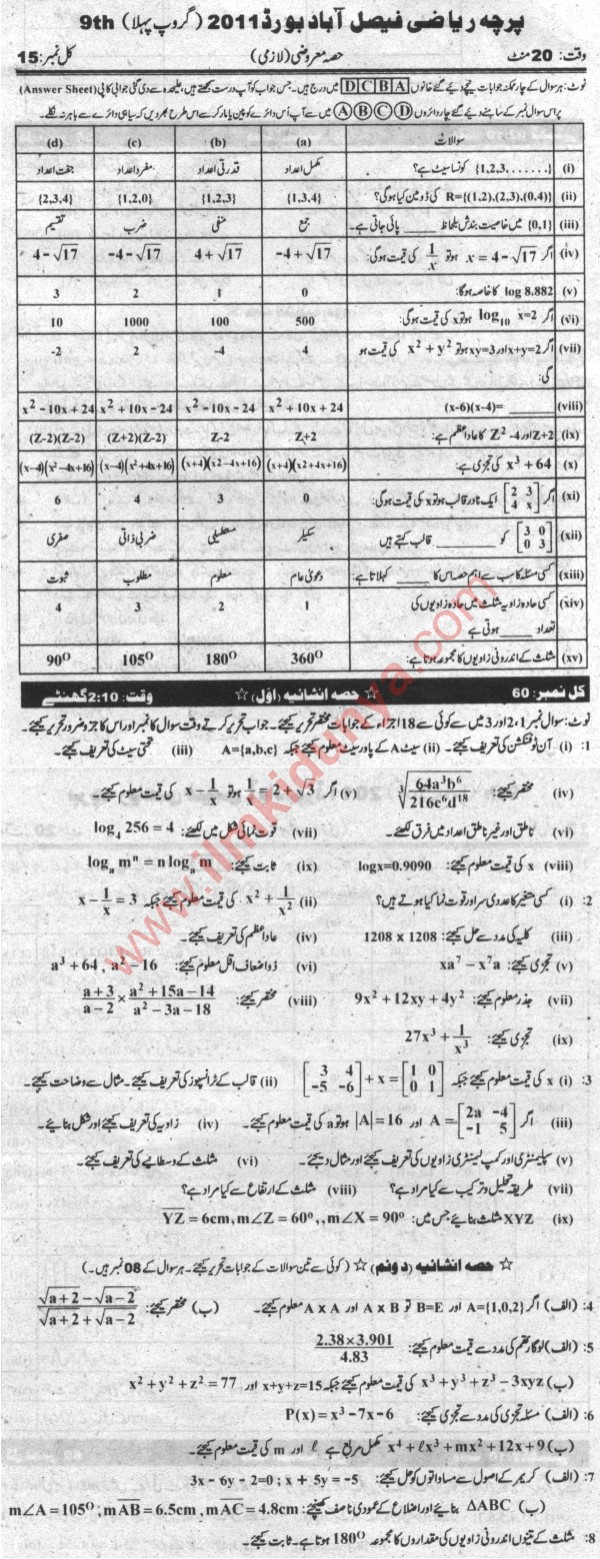 پرچہ ریاضی فیصل آباد بورڈ 2011 (گروپ پہلا) 9th
وقت: 20 منٹ حصہ معروضی (لازمی) کل نمبر: 15
نوٹ: ہر سوال کے چار ممکنہ جوابات نیچے دیئے گئے خانوں A B C D میں درج ہیں۔ جس جواب کو آپ درست سمجھتے ہیں، علیحدہ سے دی گئی جوابی کاپی (Answer Sheet)
پر اس سوال نمبر کے سامنے دیئے گئے چار دائروں A B C D میں سے آپ اُس دائرے کو پین یا مارکر سے اس طرح بھر دیں کہ سیاہی دائرے سے باہر نہ نکلے۔
سوالات (a) (b) (c) (d)
(i) {1,2,3,.......} کونسا سیٹ ہے؟ مکمل اعداد قدرتی اعداد مفرد اعداد جفت اعداد
(ii) R={(1,2),(2,3),(0,4)} کی ڈومین کیا ہوگی؟ {1,3,4} {1,2,3} {1,2,0} {2,3,4}
(iii) {0,1} میں خاصیت بندش بلحاظ ____ پائی جاتی ہے۔ جمع منفی ضرب تقسیم
(iv) اگر x = 4 − √17 ہو تو 1/x کی قیمت ہوگی: −4 + √17 4 + √17 −4 − √17 4 − √17
(v) log 8.882 کا خاصہ ہوگا: 0 1 2 3
(vi) اگر log₁₀ x=2 ہو تو x کی قیمت ہوگی: 500 100 1000 10
(vii) اگر x+y=2 اور xy=3 ہو تو x² + y² کی قیمت ہو گی: 4 -4 2 -2
(viii) (x-6)(x-4)= ____ x² + 10x + 24 x² − 10x − 24 x² + 10x − 24 x² − 10x + 24
(ix) Z+2 اور Z² -4 کا عاداعظم ہے: Z+2 Z-2 (Z+2)(Z-2) (Z-2)(Z-2)
(x) x³ + 64 کی تجزی ہے: (x+4)(x²+4x+16) (x+4)(x²−4x+16) (x−4)(x²+4x+16) (x−4)(x²−4x+16)
(xi) اگر [2 3; 4 x] ایک نادر قالب ہو تو x کی قیمت ہوگی: 0 3 4 6
(xii) [3 0; 0 3] کو ____ قالب کہتے ہیں سکیلر مستطیلی ضربی ذاتی صفری
(xiii) کسی مسئلہ کا سب سے اہم حصہ اس کا ____ کہلاتا ہے: دعویٰ عام معلوم مطلوب ثبوت
(xiv) کسی حادہ زاویہ مثلث میں حادہ زاویوں کی تعداد ____ ہوتی ہے 1 2 3 4
(xv) مثلث کے اندرونی زاویوں کا مجموعہ ہوتا ہے: 360° 180° 105° 90°
کل نمبر: 60 ☆ حصہ انشائیہ (اوّل) ☆ وقت: 2:10 گھنٹے
نوٹ: سوال نمبر 1، 2 اور 3 میں سے کوئی سے 18 اجزاء کے جوابات مختصر تحریر کیجئے۔ جواب تحریر کرتے وقت سوال کا نمبر اور اس کا جزو ضرور تحریر کیجئے۔
1: (i) آن ٹو فنکشن کی تعریف کیجئے۔ (ii) سیٹ A کے پاور سیٹ معلوم کیجئے جبکہ A={a,b,c} (iii) تحتی سیٹ کی تعریف کیجئے۔
(iv) مختصر کیجئے: ∛(64a³b⁶ / 216c⁶d¹⁸) (v) اگر 1/x = 2 + √3 ہو تو x − 1/x کی قیمت معلوم کیجئے۔
(vi) ناطق اور غیر ناطق اعداد میں فرق لکھئے۔ (vii) قوت نمائی شکل میں لکھئے: log₄ 256 = 4
(viii) x کی قیمت معلوم کیجئے: logx=0.9090 (ix) ثابت کیجئے: logₐ mⁿ = n logₐ m
2: (i) کسی متغیر کا عددی سر اور قوت نما کیا ہوتے ہیں؟ (ii) x² + 1/x² کی قیمت معلوم کیجئے جبکہ x − 1/x = 3
(iii) کلیہ کی مدد سے حل کیجئے: 1208 x 1208 (iv) عاداعظم کی تعریف کیجئے۔
(v) تجزی کیجئے: xa⁷ − x⁷a (vi) ذواضعاف اقل معلوم کیجئے: a³ + 64 , a² − 16
(vii) جذر معلوم کیجئے: 9x² + 12xy + 4y² (viii) مختصر کیجئے: (a+3)/(a−2) × (a² + 15a − 14)/(a² − 3a − 18)
(ix) تجزی کیجئے: 27x³ + 1/x³
3: (i) x کی قیمت معلوم کیجئے جبکہ [3 4; −5 −6] + x = [1 0; 0 1] (ii) قالب کے ٹرانسپوز کی تعریف کیجئے۔ مثال سے وضاحت کیجئے۔
(iii) اگر A = [2a −4; −1 5] اور |A| = 16 ہو تو a کی قیمت معلوم کیجئے۔ (iv) زاویہ کی تعریف کیجئے اور شکل بنائیے۔
(v) سپلیمنٹری اور کمپلیمنٹری زاویوں کی تعریف کیجئے اور مثال دیجئے۔ (vi) مثلث کے وسطانیے کی تعریف کیجئے۔
(vii) طریقہ تحلیل و ترکیب سے کیا مراد ہے؟ (viii) مثلث کے ارتفاع سے کیا مراد ہے؟
(ix) XYZ مثلث بنائیے جس میں: YZ = 6cm, m∠Z = 60°,, m∠X = 90°
☆ حصہ انشائیہ (دوئم) ☆ (کوئی سے تین سوالات کے جوابات تحریر کیجئے۔ ہر سوال کے 08 نمبر ہیں۔)
4: (الف) اگر A={1,0,2} اور B=E تو A x B اور A x A معلوم کیجئے۔ (ب) مختصر کیجئے: (√a+2 − √a−2)/(√a+2 + √a−2)
5: (الف) لوگارتھم کی مدد سے قیمت معلوم کیجئے: (2.38×3.901)/4.83
(ب) x³ + y³ + z³ − 3xyz کی قیمت معلوم کیجئے جبکہ x+y+z=15 اور x² + y² + z² = 77
6: (الف) مسئلہ تجزی کی مدد سے تجزی کیجئے: P(x) = x³ −7x − 6
(ب) x⁴ + ℓx³ + mx² + 12x + 9 مکمل مربع ہے ℓ اور m کی قیمت معلوم کیجئے۔
7: (الف) کریمر کے اصول سے مساواتوں کو حل کیجئے: 3x − 6y − 2=0 ; x + 5y = -5
(ب) ΔABC بنائیے اور اضلاع کے عمودی ناصف کھینچئے: m∠A = 105°, mAB = 6.5cm , mAC = 4.8cm
8: مثلث کے تینوں اندرونی زاویوں کی مقداروں کا مجموعہ 180° ہوتا ہے۔ ثابت کیجئے۔
www.ilmkidunya.com